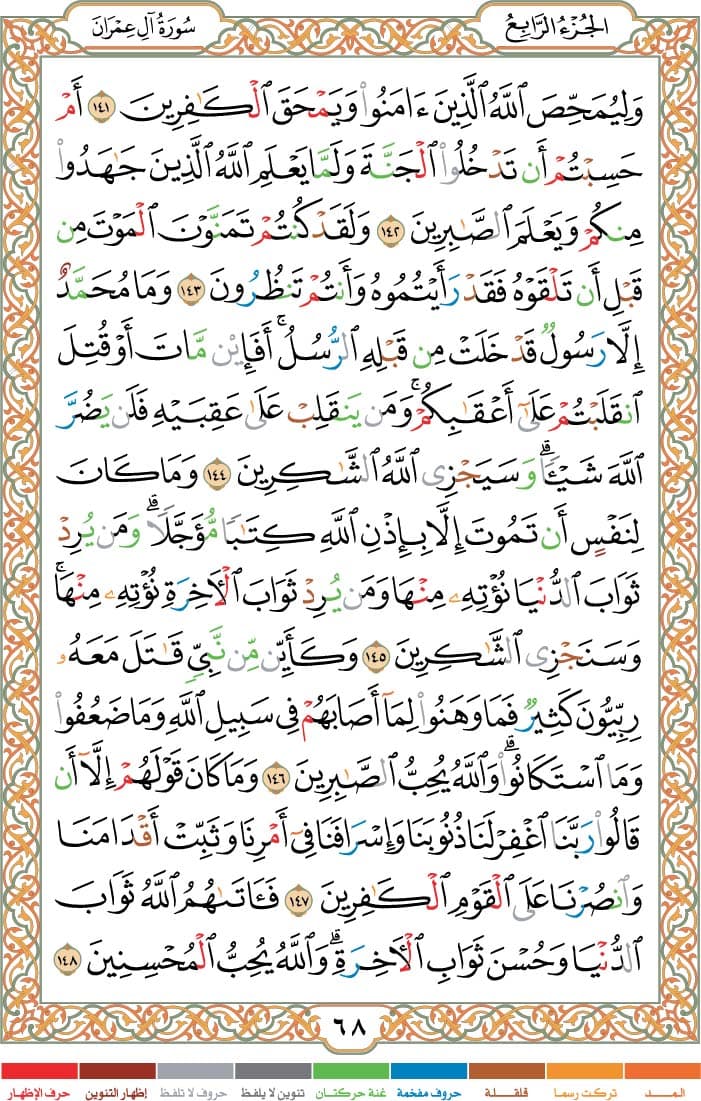 الجُزْءُ الرَّابِعُ
سُورَةُ آلِ عِمْرَانَ
وَلِيُمَحِّصَ ٱللَّهُ ٱلَّذِينَ ءَامَنُوا۟ وَيَمْحَقَ ٱلْكَـٰفِرِينَ ١٤١ أَمْ
حَسِبْتُمْ أَن تَدْخُلُوا۟ ٱلْجَنَّةَ وَلَمَّا يَعْلَمِ ٱللَّهُ ٱلَّذِينَ جَـٰهَدُوا۟
مِنكُمْ وَيَعْلَمَ ٱلصَّـٰبِرِينَ ١٤٢ وَلَقَدْ كُنتُمْ تَمَنَّوْنَ ٱلْمَوْتَ مِن
قَبْلِ أَن تَلْقَوْهُ فَقَدْ رَأَيْتُمُوهُ وَأَنتُمْ تَنظُرُونَ ١٤٣ وَمَا مُحَمَّدٌ
إِلَّا رَسُولٌ قَدْ خَلَتْ مِن قَبْلِهِ ٱلرُّسُلُ ۚ أَفَإِي۟ن مَّاتَ أَوْ قُتِلَ
ٱنقَلَبْتُمْ عَلَىٰٓ أَعْقَـٰبِكُمْ ۚ وَمَن يَنقَلِبْ عَلَىٰ عَقِبَيْهِ فَلَن يَضُرَّ
ٱللَّهَ شَيْـًٔا ۗ وَسَيَجْزِى ٱللَّهُ ٱلشَّـٰكِرِينَ ١٤٤ وَمَا كَانَ
لِنَفْسٍ أَن تَمُوتَ إِلَّا بِإِذْنِ ٱللَّهِ كِتَـٰبًا مُّؤَجَّلًا ۗ وَمَن يُرِدْ
ثَوَابَ ٱلدُّنْيَا نُؤْتِهِۦ مِنْهَا وَمَن يُرِدْ ثَوَابَ ٱلْـَٔاخِرَةِ نُؤْتِهِۦ مِنْهَا ۚ
وَسَنَجْزِى ٱلشَّـٰكِرِينَ ١٤٥ وَكَأَيِّن مِّن نَّبِىٍّ قَـٰتَلَ مَعَهُۥ
رِبِّيُّونَ كَثِيرٌ فَمَا وَهَنُوا۟ لِمَآ أَصَابَهُمْ فِى سَبِيلِ ٱللَّهِ وَمَا ضَعُفُوا۟
وَمَا ٱسْتَكَانُوا۟ ۗ وَٱللَّهُ يُحِبُّ ٱلصَّـٰبِرِينَ ١٤٦ وَمَا كَانَ قَوْلَهُمْ إِلَّآ أَن
قَالُوا۟ رَبَّنَا ٱغْفِرْ لَنَا ذُنُوبَنَا وَإِسْرَافَنَا فِىٓ أَمْرِنَا وَثَبِّتْ أَقْدَامَنَا
وَٱنصُرْنَا عَلَى ٱلْقَوْمِ ٱلْكَـٰفِرِينَ ١٤٧ فَـَٔاتَىٰهُمُ ٱللَّهُ ثَوَابَ
ٱلدُّنْيَا وَحُسْنَ ثَوَابِ ٱلْـَٔاخِرَةِ ۗ وَٱللَّهُ يُحِبُّ ٱلْمُحْسِنِينَ ١٤٨
٦٨
المـــد تركت رسما قلقـلة حروف مفخمة غنة حركتـان تنوين لا يلفظ حروف لا تلفظ إظهار التنوين حرف الإظهار